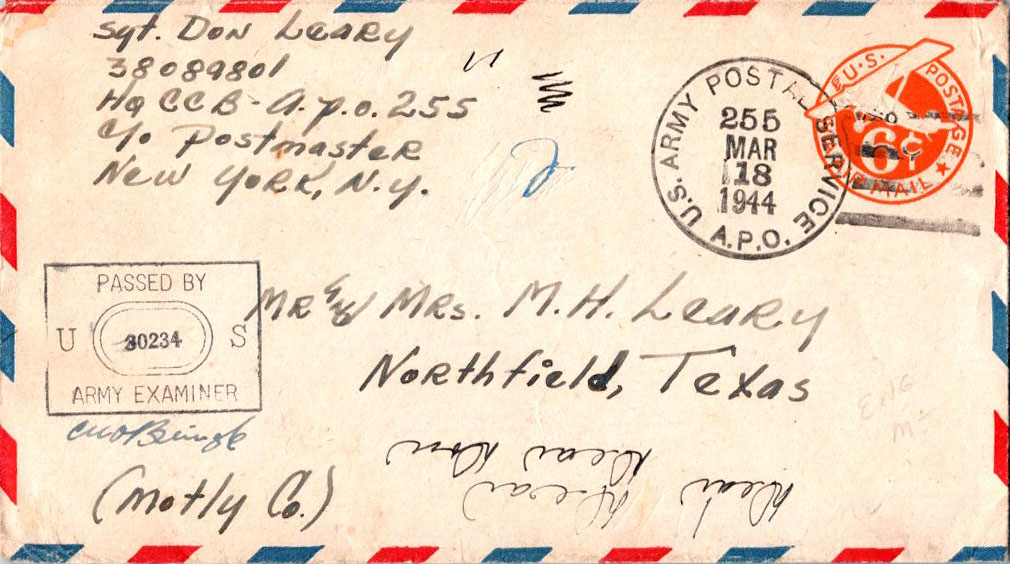 Sgt. Don Leary
38089801
Hq CCB - A.P.O. 255
c/o Postmaster
New York, N.Y.
U.S. ARMY POSTAL SERVICE
255
MAR
18
1944
A.P.O.
U.S. POSTAGE
6¢
AIR MAIL
PASSED BY
U 30234 S
ARMY EXAMINER
Mr & Mrs. M.H. Leary
Northfield, Texas
(Motly Co.)
Dear Don
Dear Dear